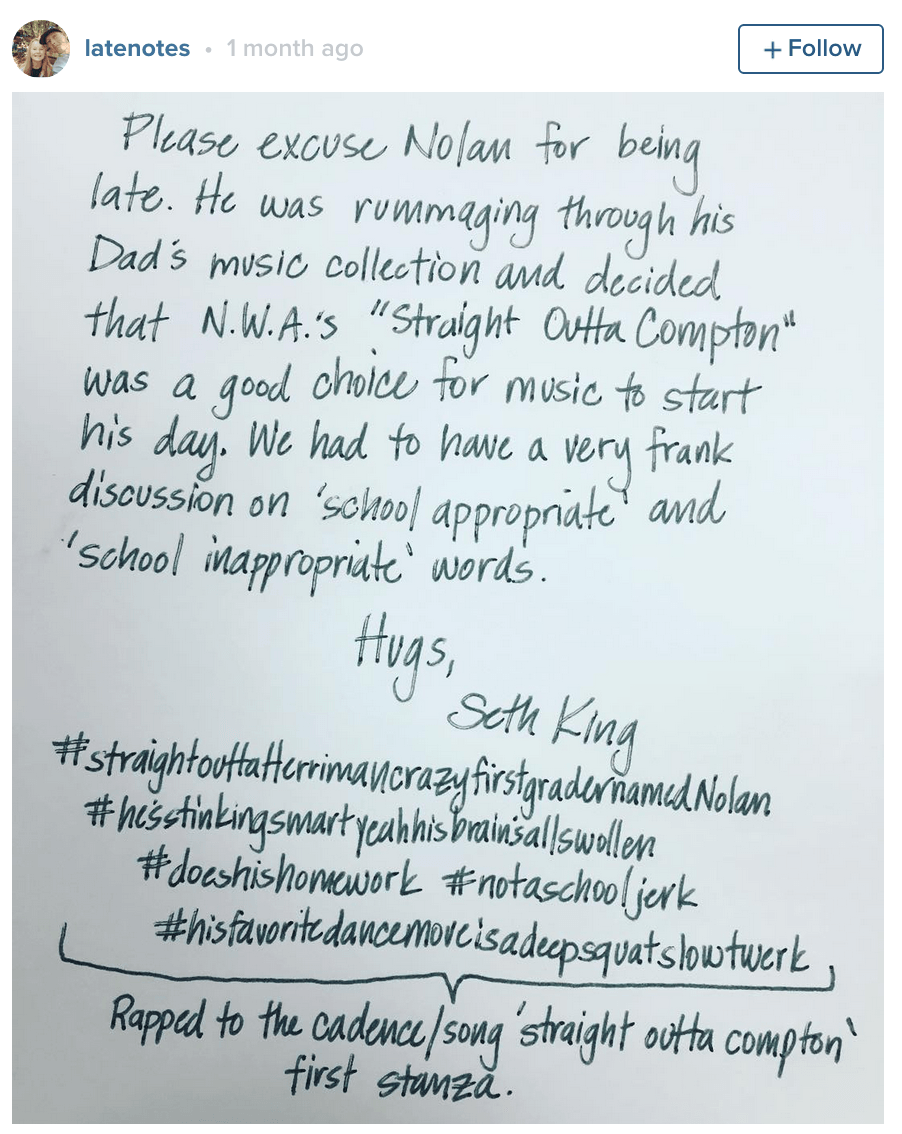 latenotes • 1 month ago
+ Follow
Please excuse Nolan for being
late. He was rummaging through his
Dad's music collection and decided
that N.W.A.'s "Straight Outta Compton"
was a good choice for music to start
his day. We had to have a very frank
discussion on 'school appropriate' and
'school inappropriate' words.
Hugs,
Seth King
#straightouttaHerrimancrazyfirstgradernamedNolan
#he'sstinkingsmartyeahhisbrain'sallswollen
#doeshishomework #notaschooljerk
#hisfavoritedancemoveisadeepsquatslowtwerk
Rapped to the cadence/song 'straight outta compton'
first stanza.